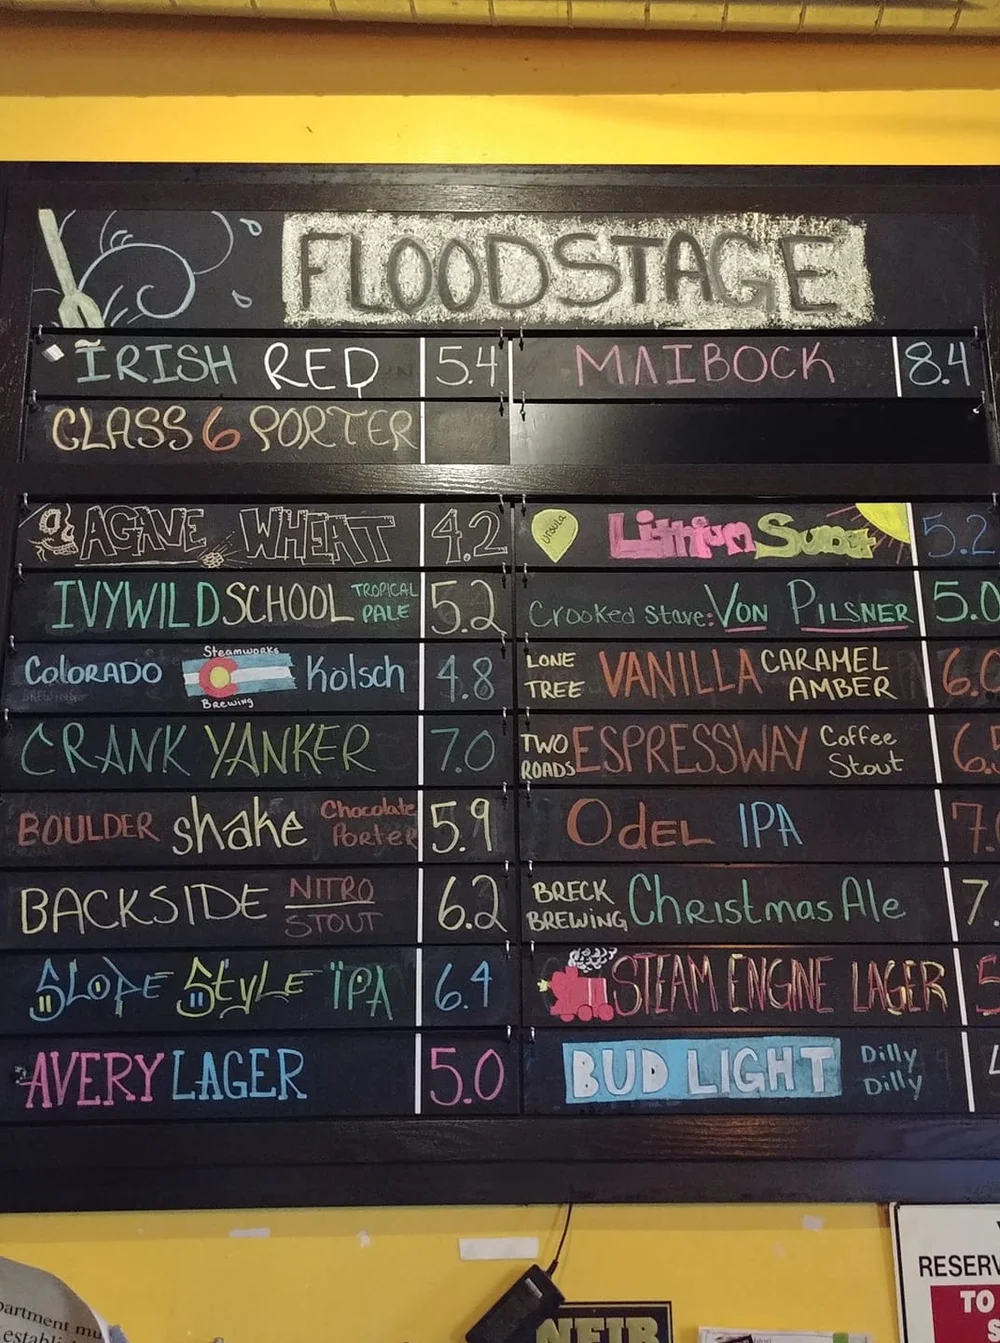 FLOODSTAGE
IRISH RED 5.4
MAIBOCK 8.4
CLASS 6 PORTER
AGAVE WHEAT 4.2
IVYWILD SCHOOL TROPICAL PALE 5.2
Colorado Steamworks Brewing Kölsch 4.8
CRANK YANKER 7.0
BOULDER shake Chocolate Porter 5.9
BACKSIDE NITRO STOUT 6.2
SLOPE STYLE IPA 6.4
AVERY LAGER 5.0
Ursula Lithium 5.2
Crooked Stave: VON PILSNER 5.0
LONE TREE VANILLA CARAMEL AMBER 6.0
TWO ROADS ESPRESSWAY Coffee Stout 6.5
Odel IPA 7.
BRECK BREWING Christmas Ale 7.
STEAM ENGINE LAGER 5
BUD LIGHT Dilly Dilly 4
partment mu
establi
RESERV
TO
S